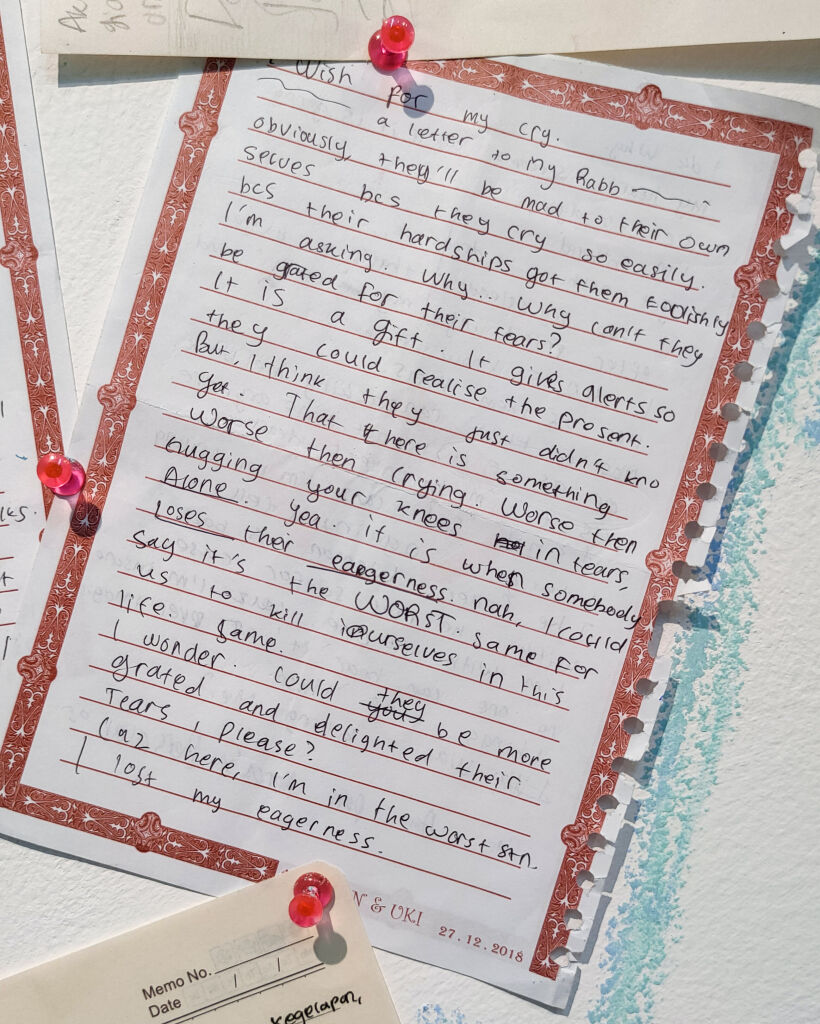 Wish for my cry.
a letter to my Rabb
obviously, they'll be mad to their own
serves bcs they cry so easily.
bcs their hardships got them foolishly
I'm asking. Why... Why can't they
be grated for their tears?
It is a gift. It gives alerts so
they could realise the present.
But, I think they just didn't kno
yet. That there is something
worse then crying. Worse then
hugging your knees in tears,
Alone. Yea. it is when somebody
loses their eagerness. nah, I could
say it's the WORST. Same for
us to kill ourselves in this
life. Same.
I wonder. Could they be more
grated and delighted their
Tears, please?
Cuz here, I'm in the worst stn.
I lost my eagerness.
& UKI
27.12.2018
Memo No.
Date / /
kegelapan,